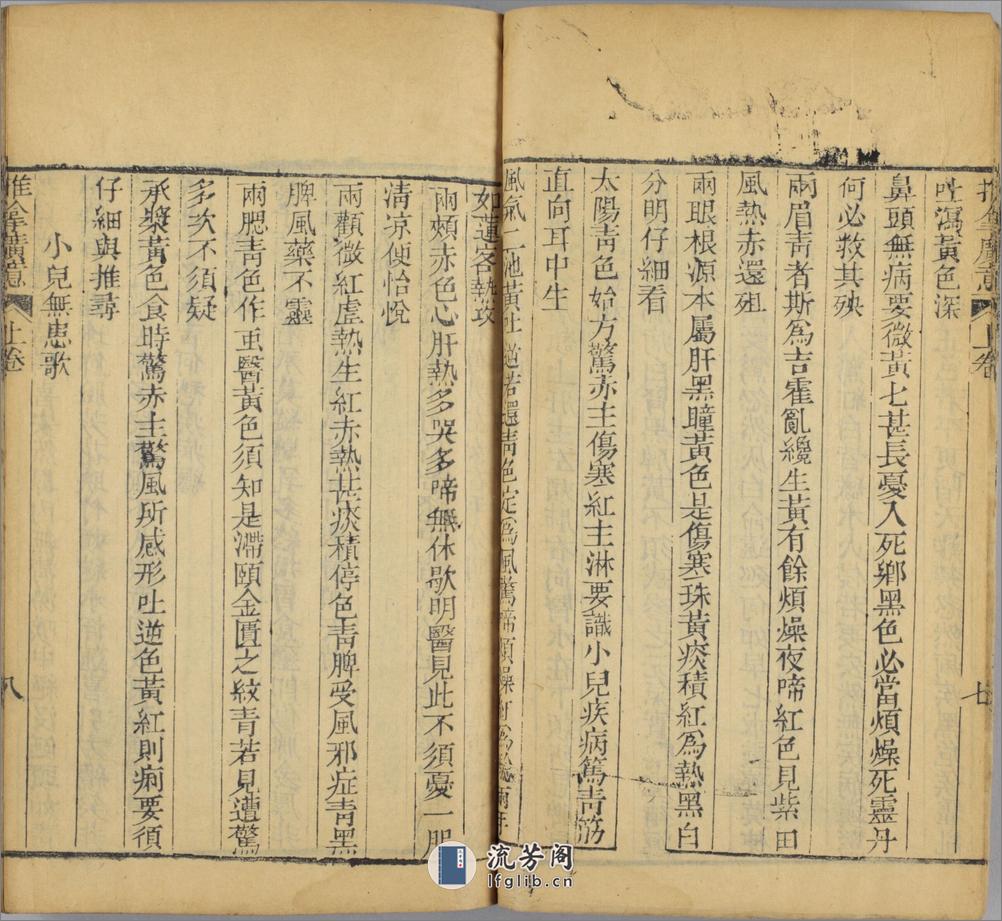 推拿廣意 上卷 七
吐瀉黃色深
鼻頭無病要微黃黃甚長憂入死鄉黑色必當煩燥死靈丹
何必救其殃
兩眉青者斯為吉霍亂纔生黃有餘煩燥夜啼紅色見紫田
風熱赤還殂
兩眼根源本屬肝黑瞳黃色是傷寒珠黃痰積紅為熱黑白
分明仔細看
太陽青色始方驚赤主傷寒紅主淋要識小兒疾病篤青筋
直向耳中生
風氣二池黃吐逆若還青色定為風驚啼煩燥紅為
如蓮客熱攻
兩頰赤色心肝熱多哭多啼無休歇明醫見此不須憂一服
清凉便怡悅
兩觀微紅虛熱生紅赤熱甚痰積停色青脾受風邪症青黑
脾風藥不靈
兩腮青色作虫醫黃色須知是滯頤金匱之紋青若見遭驚
多次不須疑
承漿黃色食時驚赤主驚風所感形吐逆色黃紅則痢要須
仔細與推尋
小兒無患歌
推拿廣意 上卷 八
流芳阁
lfglib.cn